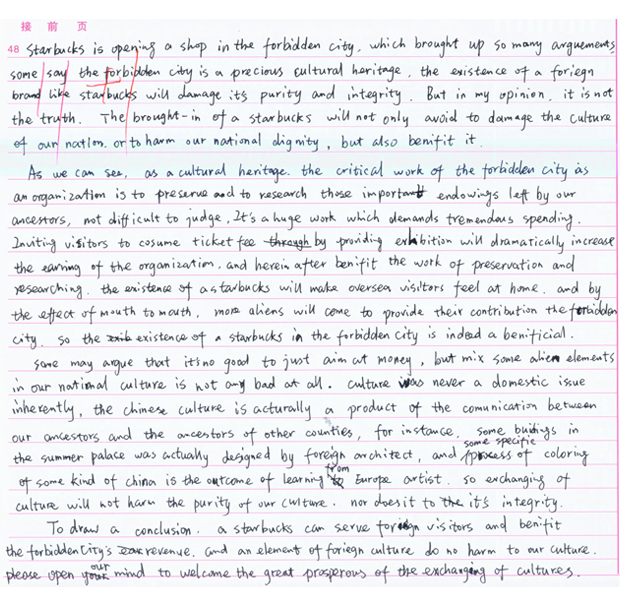 接 前 页
48 Starbucks is opening a shop in the forbidden city, which brought up so many arguements,
some say the forbidden city is a precious cultural heritage, the existence of a foriegn
brand like starbucks will damage its purity and integrity. But in my opinion, it is not
the truth. The brought-in of a starbucks will not only avoid to damage the culture
of our nation, or to harm our national dignity, but also benifit it.
As we can see, as a cultural heritage. the critical work of the forbidden city as
an organization is to preserve and to research those important endowings left by our
ancestors, not difficult to judge, It's a huge work which demands tremendous spending.
Inviting visitors to cosume ticket fee through by providing exhibition will dramatically increase
the earning of the organization. and herein after benifit the work of preservation and
researching. the existence of a starbucks will make oversea visitors feel at home. and by
the effect of mouth to mouth, more aliens will come to provide their contribution the forbidden
city. so the existence of a starbucks in the forbidden city is indeed a benificial.
Some may argue that it's no good to just aim at money, but mix some alien elements
in our national culture is not any bad at all. culture was never a domestic issue
inherently, the chinese culture is acturally a product of the comunication between
our ancestors and the ancestors of other counties, for instance, some buidings in
the summer palace was actually designed by foreign architect, and some specific process of coloring
of some kind of china is the outcome of learning from Europe artist. so exchanging of
culture will not harm the purity of our culture. nor does it to the it's integrity.
To draw a conclusion. a starbucks can serve foreign visitors and benifit
the forbidden City's revenue. and an element of foriegn culture do no harm to our culture.
please open our mind to welcome the great prosperous of the exchanging of cultures.